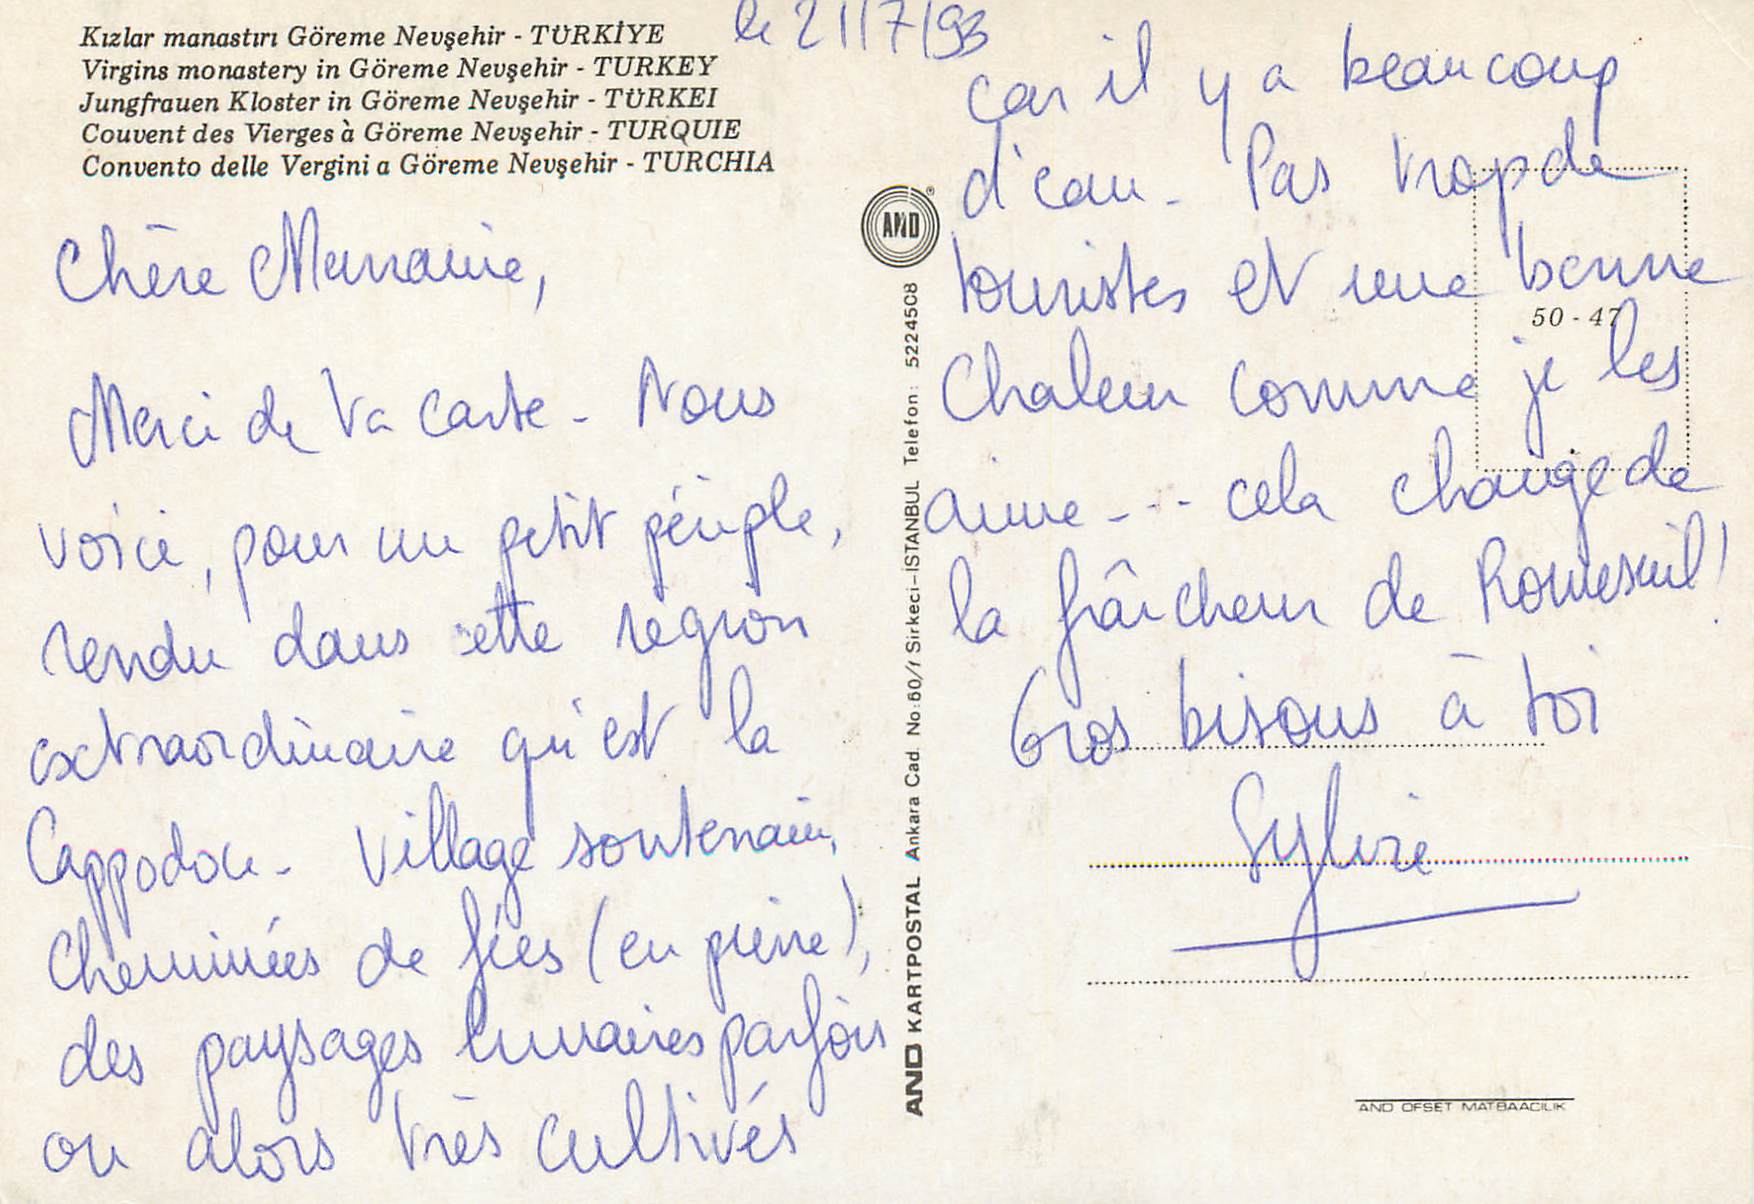 Kızlar manastırı Göreme Nevşehir - TÜRKİYE
Virgins monastery in Göreme Nevşehir - TURKEY
Jungfrauen Kloster in Göreme Nevşehir - TÜRKEI
Couvent des Vierges à Göreme Nevşehir - TURQUIE
Convento delle Vergini a Göreme Nevşehir - TURCHIA
le 21/7/93
Chère
Merci de ta carte - Nous
voici, pour un petit périple,
rendu dans cette région
extraordinaire qu'est la
Cappodoce - Village souterrain,
Cheminées de fées (en pierre),
des paysages lunaires parfois
ou alors très cultivés
car il y a beaucoup
d'eau - Pas trop de
touristes et une bonne
Chaleur comme je les
aime - - - cela change de
la fraîcheur de !
Gros bisous à toi
Sylvie
AND
50 - 47
AND KARTPOSTAL Ankara Cad. No:60/1 Sirkeci-İSTANBUL Telefon: 5224508
AND OFSET MATBAACILIK